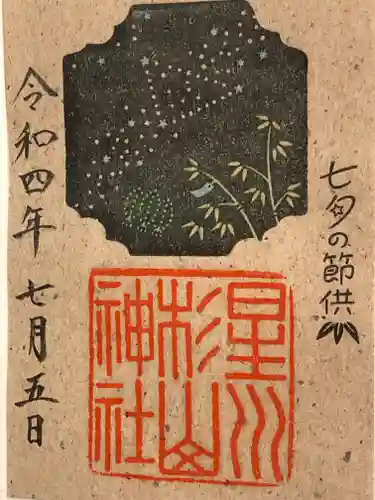 七夕の節供
星川
杉山
神社
令和四年
七月五日